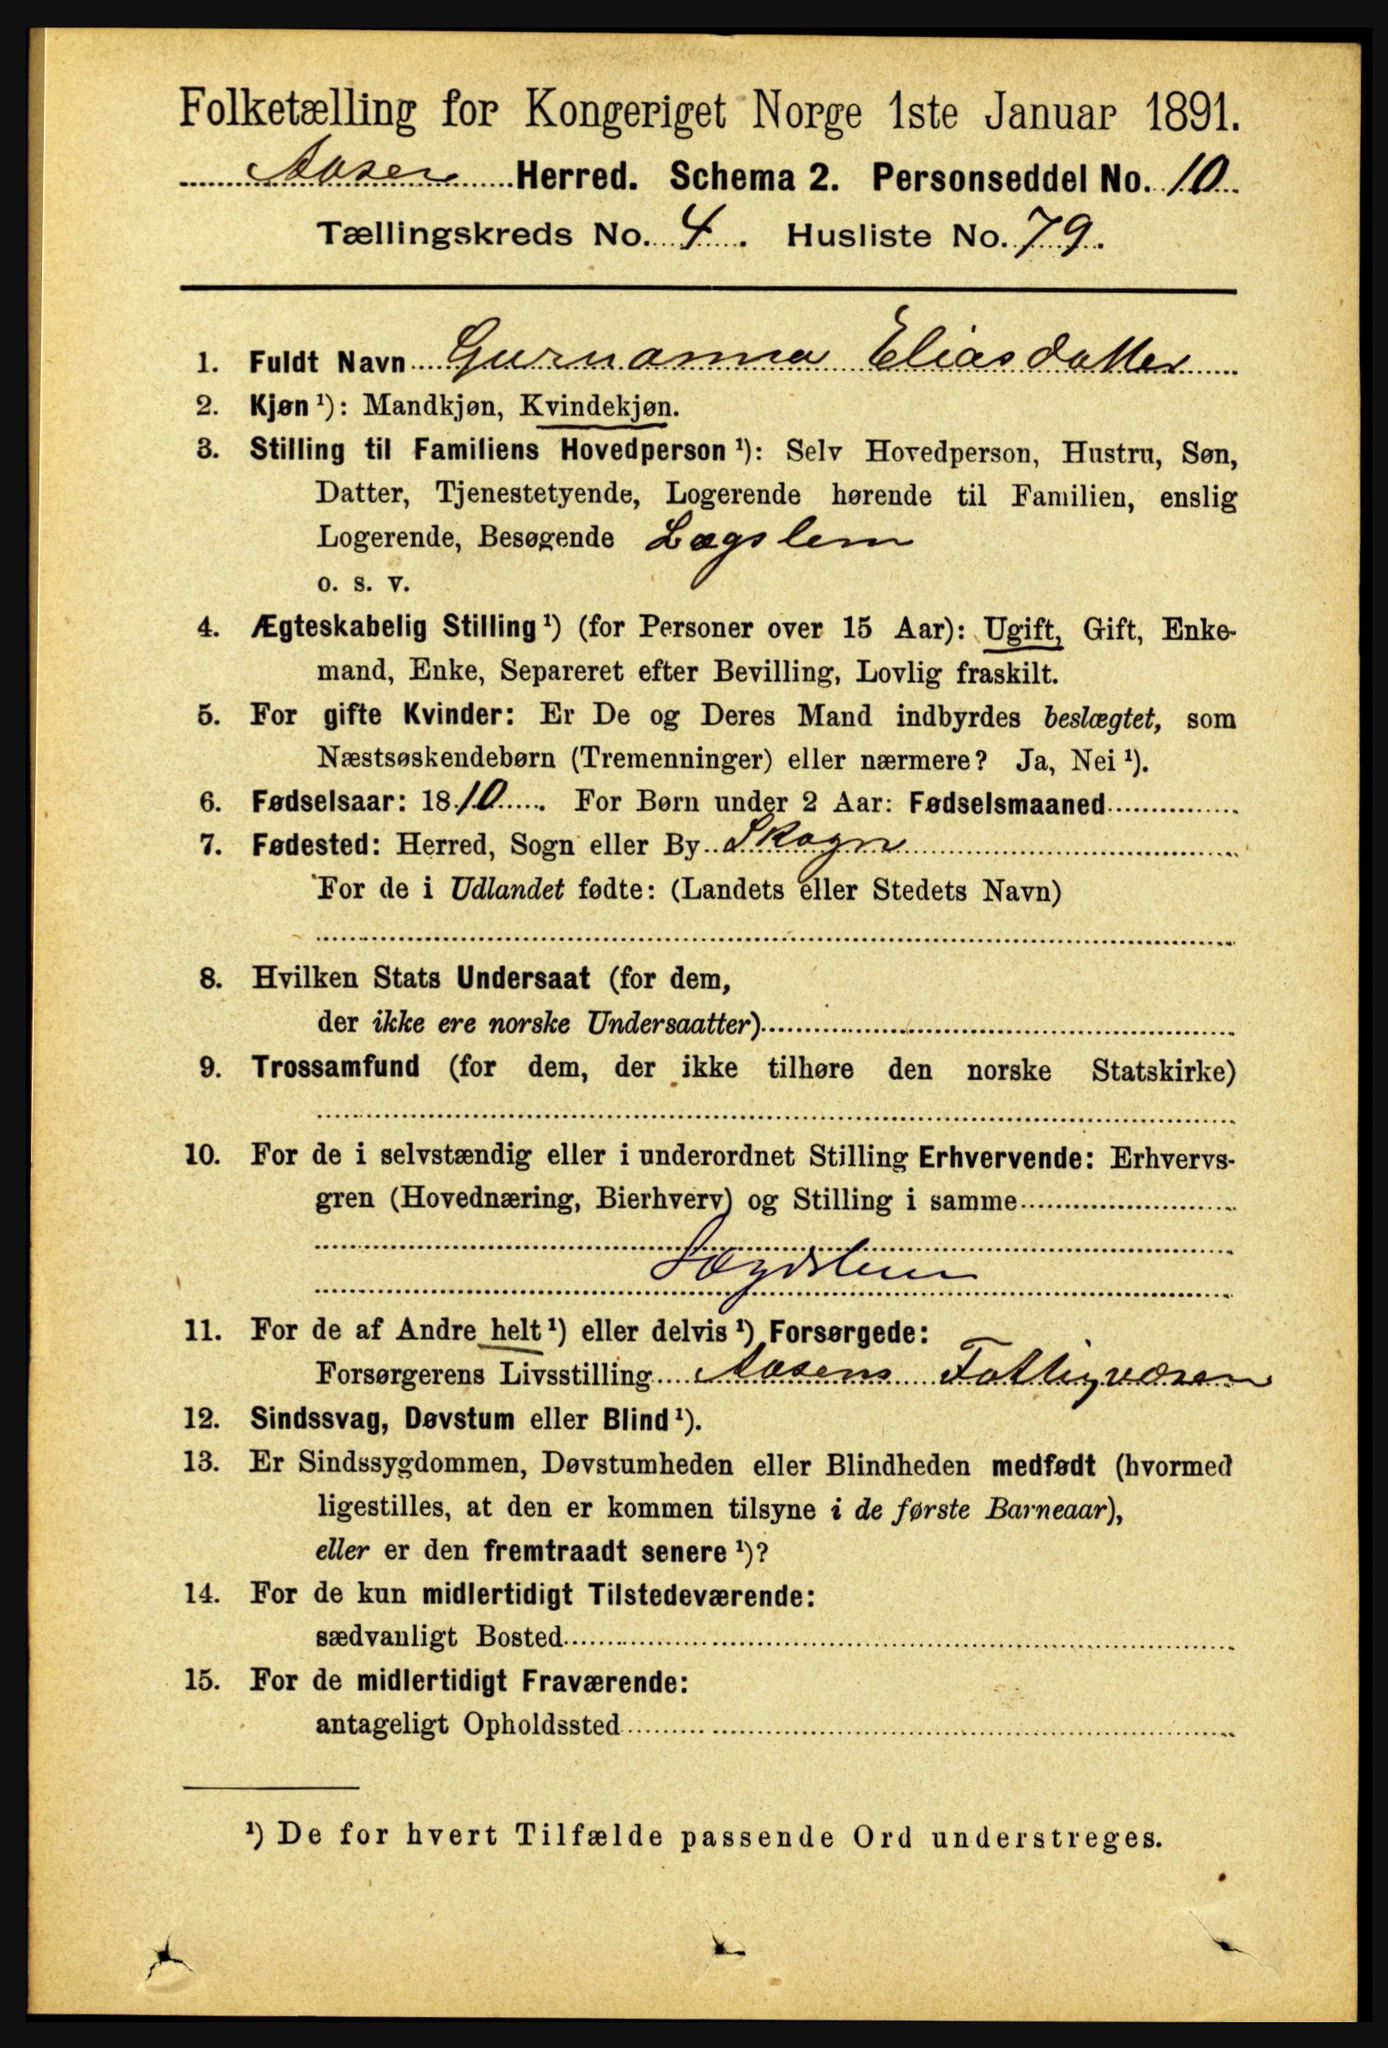 Folketælling for Kongeriget Norge 1ste Januar 1891.
Aasen Herred. Schema 2. Personseddel No. 10
Tællingskreds No. 4. Husliste No. 79.
1. Fuldt Navn Gurnanna Eliasdatter
2. Kjøn ¹): Mandkjøn, Kvindekjøn.
3. Stilling til Familiens Hovedperson ¹): Selv Hovedperson, Hustru, Søn,
Datter, Tjenestetyende, Logerende hørende til Familien, enslig
Logerende, Besøgende Lægslem
o. s. v.
4. Ægteskabelig Stilling ¹) (for Personer over 15 Aar): Ugift, Gift, Enke-
mand, Enke, Separeret efter Bevilling, Lovlig fraskilt.
5. For gifte Kvinder: Er De og Deres Mand indbyrdes beslægtet, som
Næstsøskendebørn (Tremenninger) eller nærmere? Ja, Nei ¹).
6. Fødselsaar: 1810. For Børn under 2 Aar: Fødselsmaaned
7. Fødested: Herred, Sogn eller By Skogn
For de i Udlandet fødte: (Landets eller Stedets Navn)
8. Hvilken Stats Undersaat (for dem,
der ikke ere norske Undersaatter)
9. Trossamfund (for dem, der ikke tilhøre den norske Statskirke)
10. For de i selvstændig eller i underordnet Stilling Erhvervende: Erhvervs-
gren (Hovednæring, Bierhverv) og Stilling i samme
Lægdslem
11. For de af Andre helt ¹) eller delvis ¹) Forsørgede:
Forsørgerens Livsstilling Aasens Fattigvæsen
12. Sindssvag, Døvstum eller Blind ¹).
13. Er Sindssygdommen, Døvstumheden eller Blindheden medfødt (hvormed
ligestilles, at den er kommen tilsyne i de første Barneaar),
eller er den fremtraadt senere ¹)?
14. For de kun midlertidigt Tilstedeværende:
sædvanligt Bosted
15. For de midlertidigt Fraværende:
antageligt Opholdssted
¹) De for hvert Tilfælde passende Ord understreges.